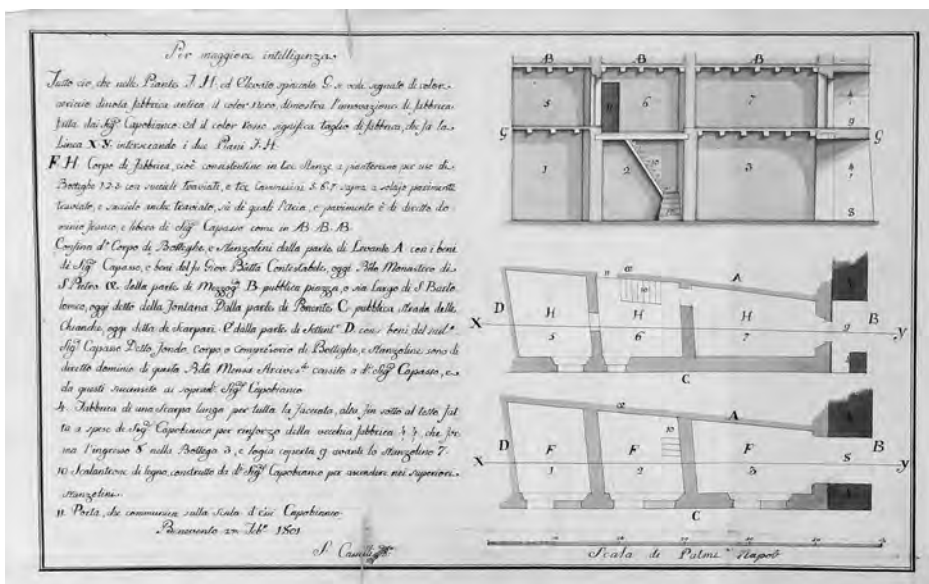 Per maggiore intelligenza
Tutto ciò, che nelle Piante F. H. ed Elevato spaccato G. si vede segnato di color
fabbrica antica il color nero, dimostra l'innovazione di fabbrica
fatta dai Sigri Capobianco: ed il color Rosso significa taglio di fabbrica, che fa la
Linea X Y. intersecando i due Piani F. H.
F. H. Corpo di fabbrica, cioè consistentino in tre Stanze a pianterreno per uso di
Botteghe 1. 2. 3. con travati, e tre Cammerini 5. 6. 7. sopra a solajo pavimenti
travato, e anche travato, di quali l'aria, e pavimento è di diretto do
minio franco, e libero di Sigri Capasso come in AB. AB. AB.
Confina do Corpo di Botteghe, e Stanzolini dalla parte di Levante A con i beni
di Sigri Capasso, e beni del fu Giov. Batta Contestabile, oggi Monastero di
S. Pietro &. dalla parte di Mezzogo B pubblica piazza, o sia Largo di S. Barto
lomeo, oggi detto della Fontana Dalla parte di Ponente C. pubblica strada delle
Chianche, oggi detta de Scarpari. E dalla parte di D. con i beni del
Sigri Capasso Detto fondo, corpo o comprensorio di Botteghe, e Stanzoline sono di
diretto dominio di questa Mensa censito a di Sigri Capasso, e
da questi succensito ai Sigri Capobianco
4. Fabbrica di una Scarpa lunga per tutta la facciata, alta fin sotto al tetto fat
ta a spese de Sigri Capobianco per rinforzo della vecchia fabbrica 4. 4. che for
ma l'ingresso 8 nella Bottega 3, e logia coperta 9 avanti lo stanzolino 7.
10 Scalantrone di legno, construtto da di Sigri Capobianco per ascendere nei superiori
stanzolini.
11 Porta, che communica sulla Scala d'essi Capobianco
Benevento 1801
AB AB AB
5 11 6 7 4 9
G G
1 2 10 3 4 8
11 Œ A
10
D H H H B
X 5 6 7 9 Y
C
Œ A
10
D F F F B
X 1 2 3 8 Y
C
Scala di Palmi Napoli